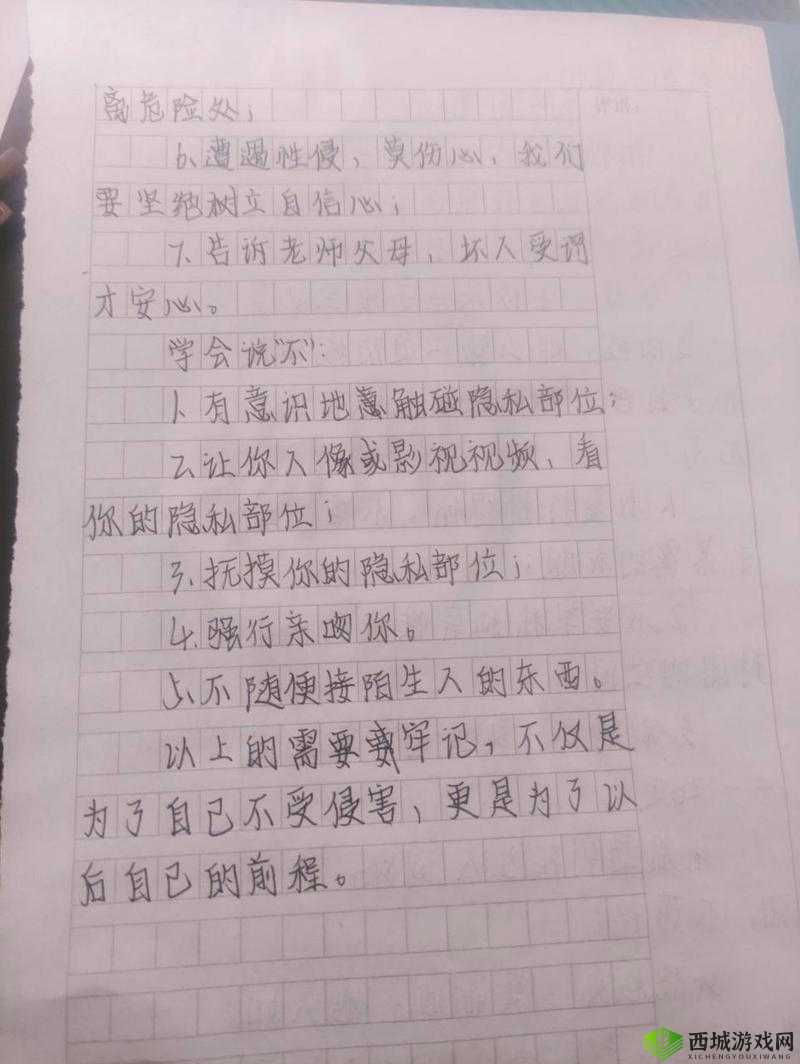 离危险处；
6.遭遇性侵，莫伤心，我们
要坚强树立自信心；
7.告诉老师父母，坏人受罚
才安心。
学会说“不”：
1.有意识地触碰隐私部位；
2.让你人像或影视视频，看
你的隐私部位；
3.抚摸你的隐私部位；
4.强行亲吻你。
5.不随便接陌生人的东西。
以上的需要我牢记，不仅是
为了自己不受侵害，更是为了以
后自己的前程。
西城游戏网
XICHENGYOUXIWANG